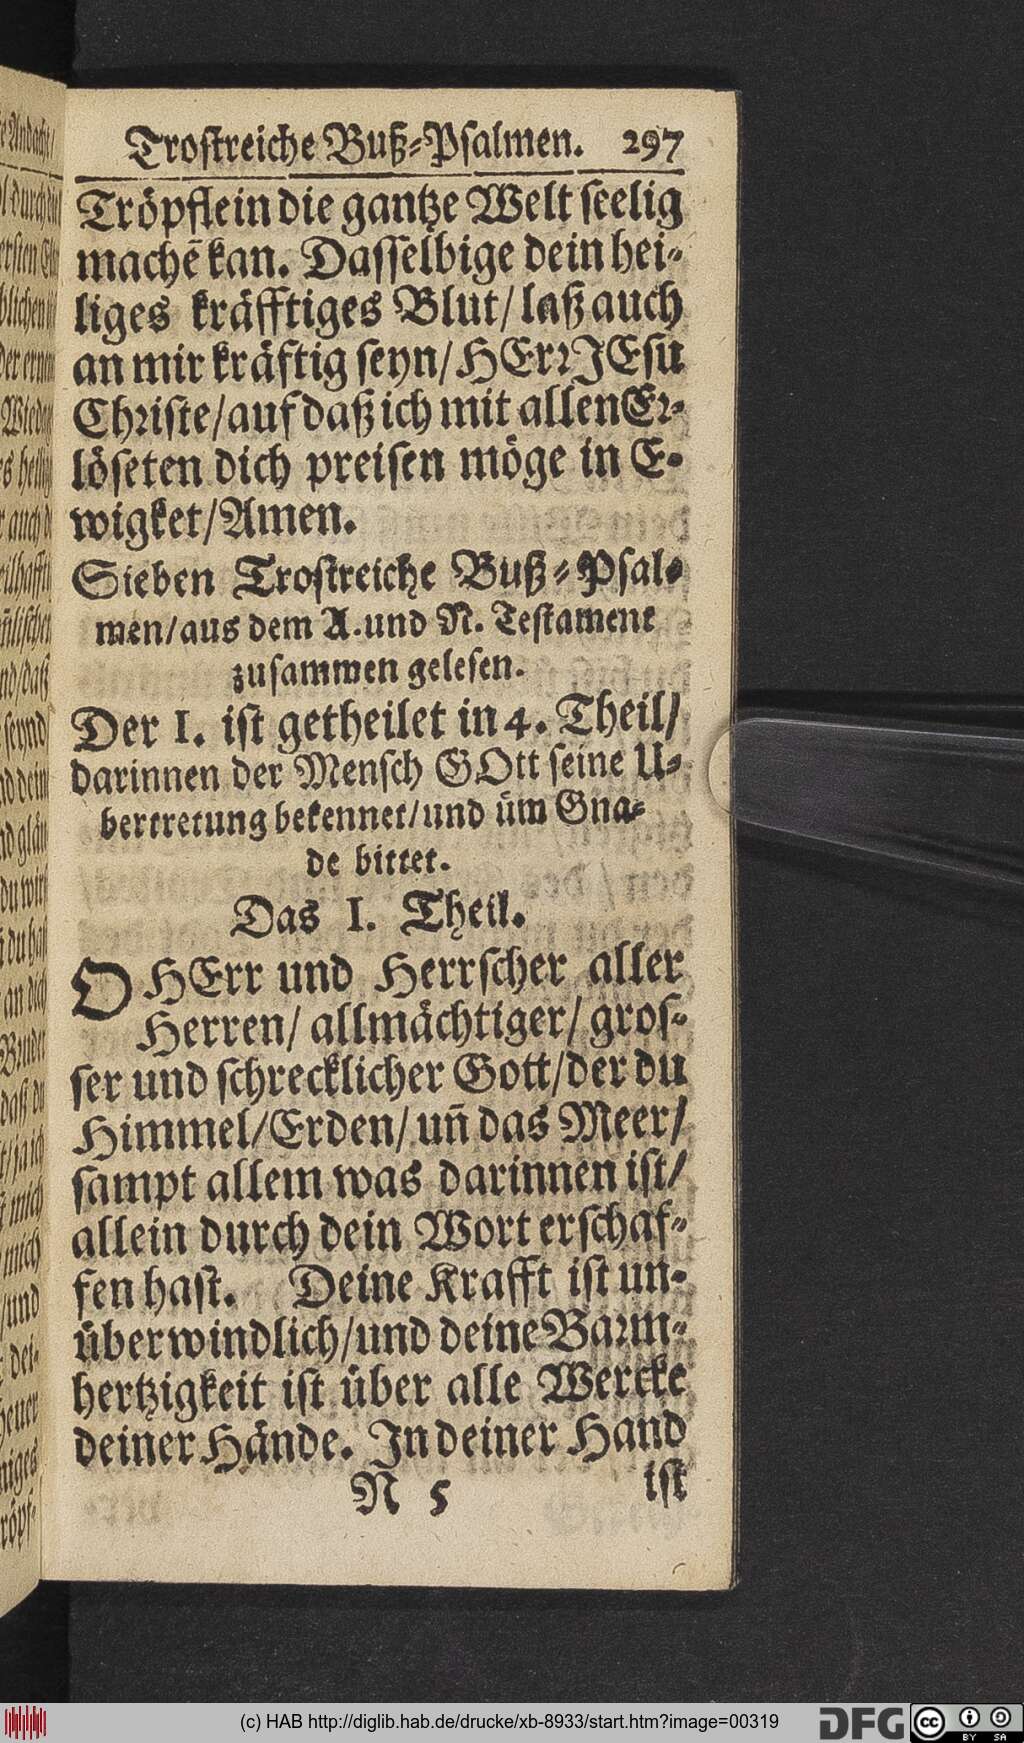 Trostreiche Buß-Psalmen. 297
Tröpflein die gantze Welt seelig
machē kan. Dasselbige dein hei-
liges kräfftiges Blut/ laß auch
an mir kräftig seyn/ HErr JEsu
Christe/ auf daß ich mit allen Er-
löseten dich preisen möge in E-
wigket/ Amen.
Sieben Trostreiche Buß-Psal-
men/ aus dem A. und N. Testament
zusammen gelesen.
Der I. ist getheilet in 4. Theil/
darinnen der Mensch GOtt seine U-
bertretung bekennet/ und üm Gna-
de bittet.
Das I. Theil.
O HErr und Herrscher aller
Herren/ allmächtiger/ gros-
ser und schrecklicher Gott/ der du
Himmel/ Erden/ uñ das Meer/
sampt allem was darinnen ist/
allein durch dein Wort erschaf-
fen hast. Deine Krafft ist un-
überwindlich/ und deine Barm-
hertzigkeit ist über alle Wercke
deiner Hände. In deiner Hand
N 5 ist
(c) HAB http://diglib.hab.de/drucke/xb-8933/start.htm?image=00319
DFG
cc
BY SA